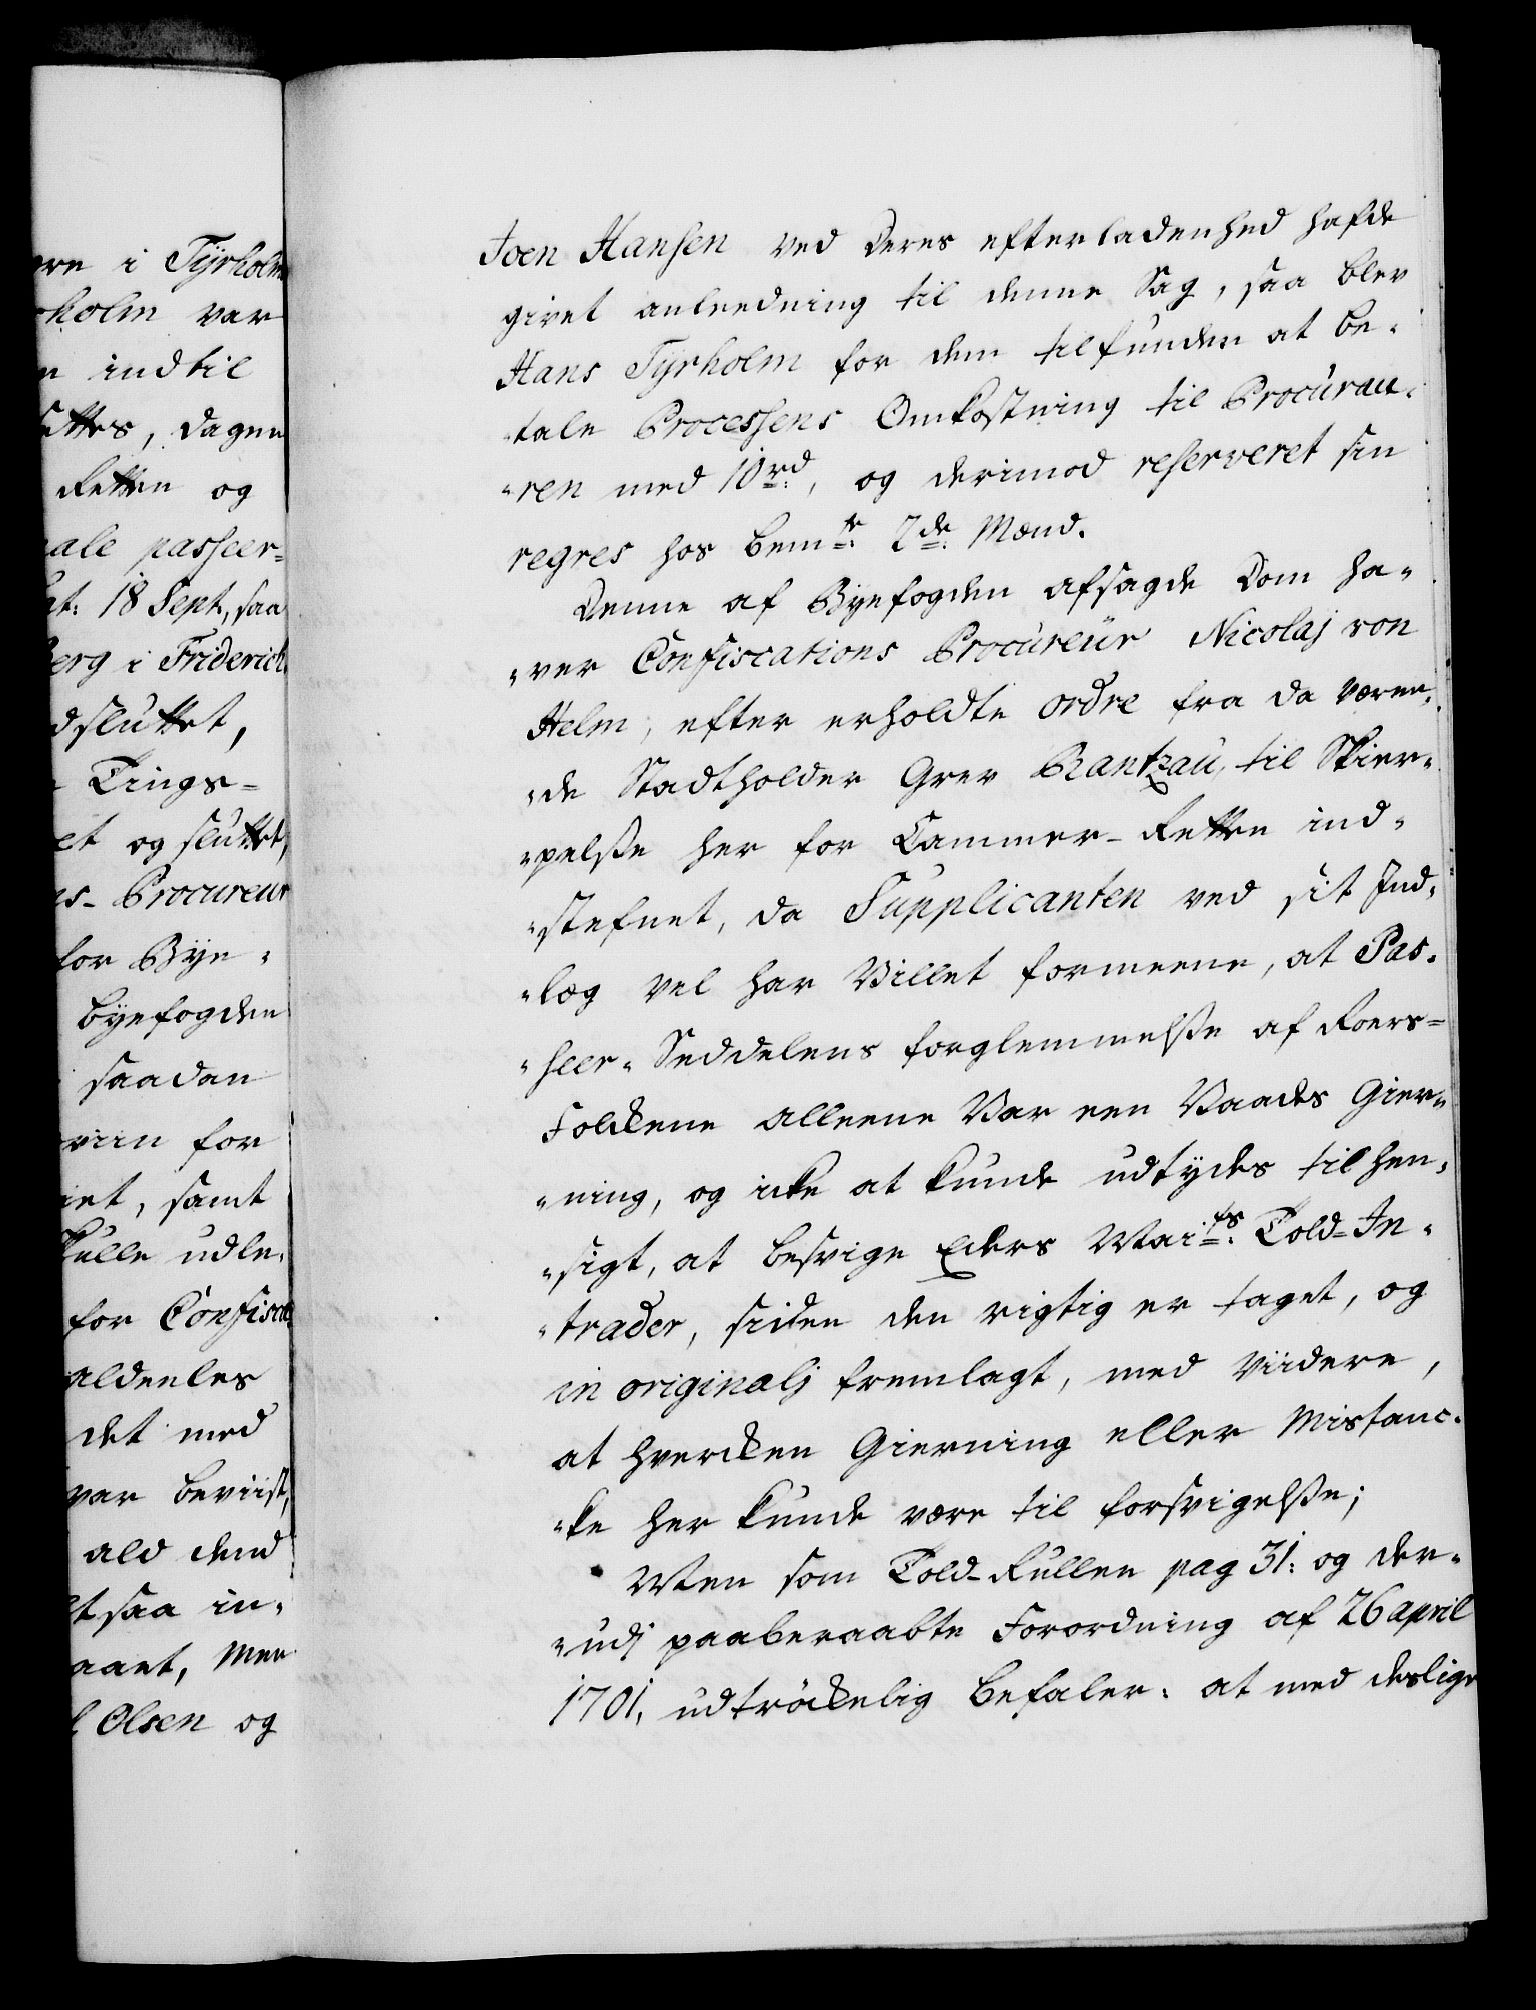 ere i Tyrholm
rholm var
n indtil
uttes, dagen
Retten og
ale passeer=
at: 18 Sept, saa
berg i Friderich
dsluttet,
Tings=
et og sluttet,
ns- Procureur
for Bye=
byefogden
saadan
viin for
iet, samt
skulle udle=
for Confisca
aldeeles
det med
var beviist,
ald dend
t saa in=
aaet, Men
l Olsen og
Joen Hansen ved deres efterladenhed hafde
givet anleedning til denne Sag, saa blev
Hans Tyrholm for dem tilfunden at be=
=tale Processens Omkostning til Procurau=
=ren med 10 rd, og derimod reserveret sin
regres hos bemte 2de Mænd.
Denne af Byefogden afsagde Dom ha=
=ver Confiscations Procureur Nicolaj von
Helm, efter erholdte ordre fra da væren=
=de Stadtholder Grev Rantzau, til Skier=
=pelsse her for Cammer-Retten ind=
=stefnet, da Supplicanten ved sit Ind=
=læg vel har Villet formeene, at Pas=
=seer= Seddelens forglemmelsse af Roers=
Folckene alleene Var een Vaades Gier=
=ning, og icke at kunde udtydes til hen=
=sigt, at besvige Eders Maits. Told-In=
=trader, siden den rigtig er taget, og
in originalj fremlagt, med viidere,
at hvercken Gierning eller Mistanc=
=ke her kunde være til forsvigelsse;
Men som Told-Rullen pag 31: og der=
=udj paaberaabte Forordning af 26 april
1701, udtröckelig befaler: at med deslige